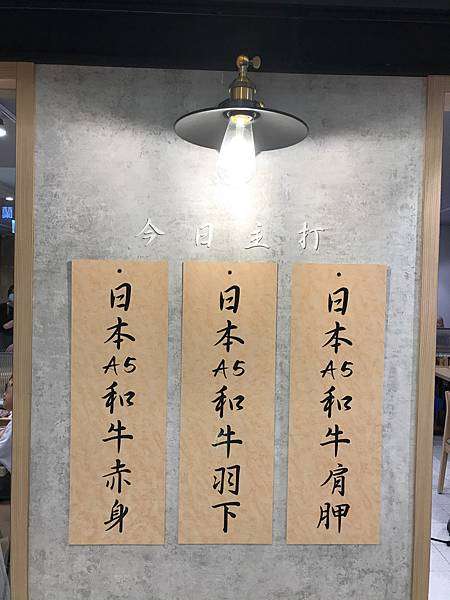 今日主打
日本A5和牛肩胛
日本A5和牛羽下
日本A5和牛赤身